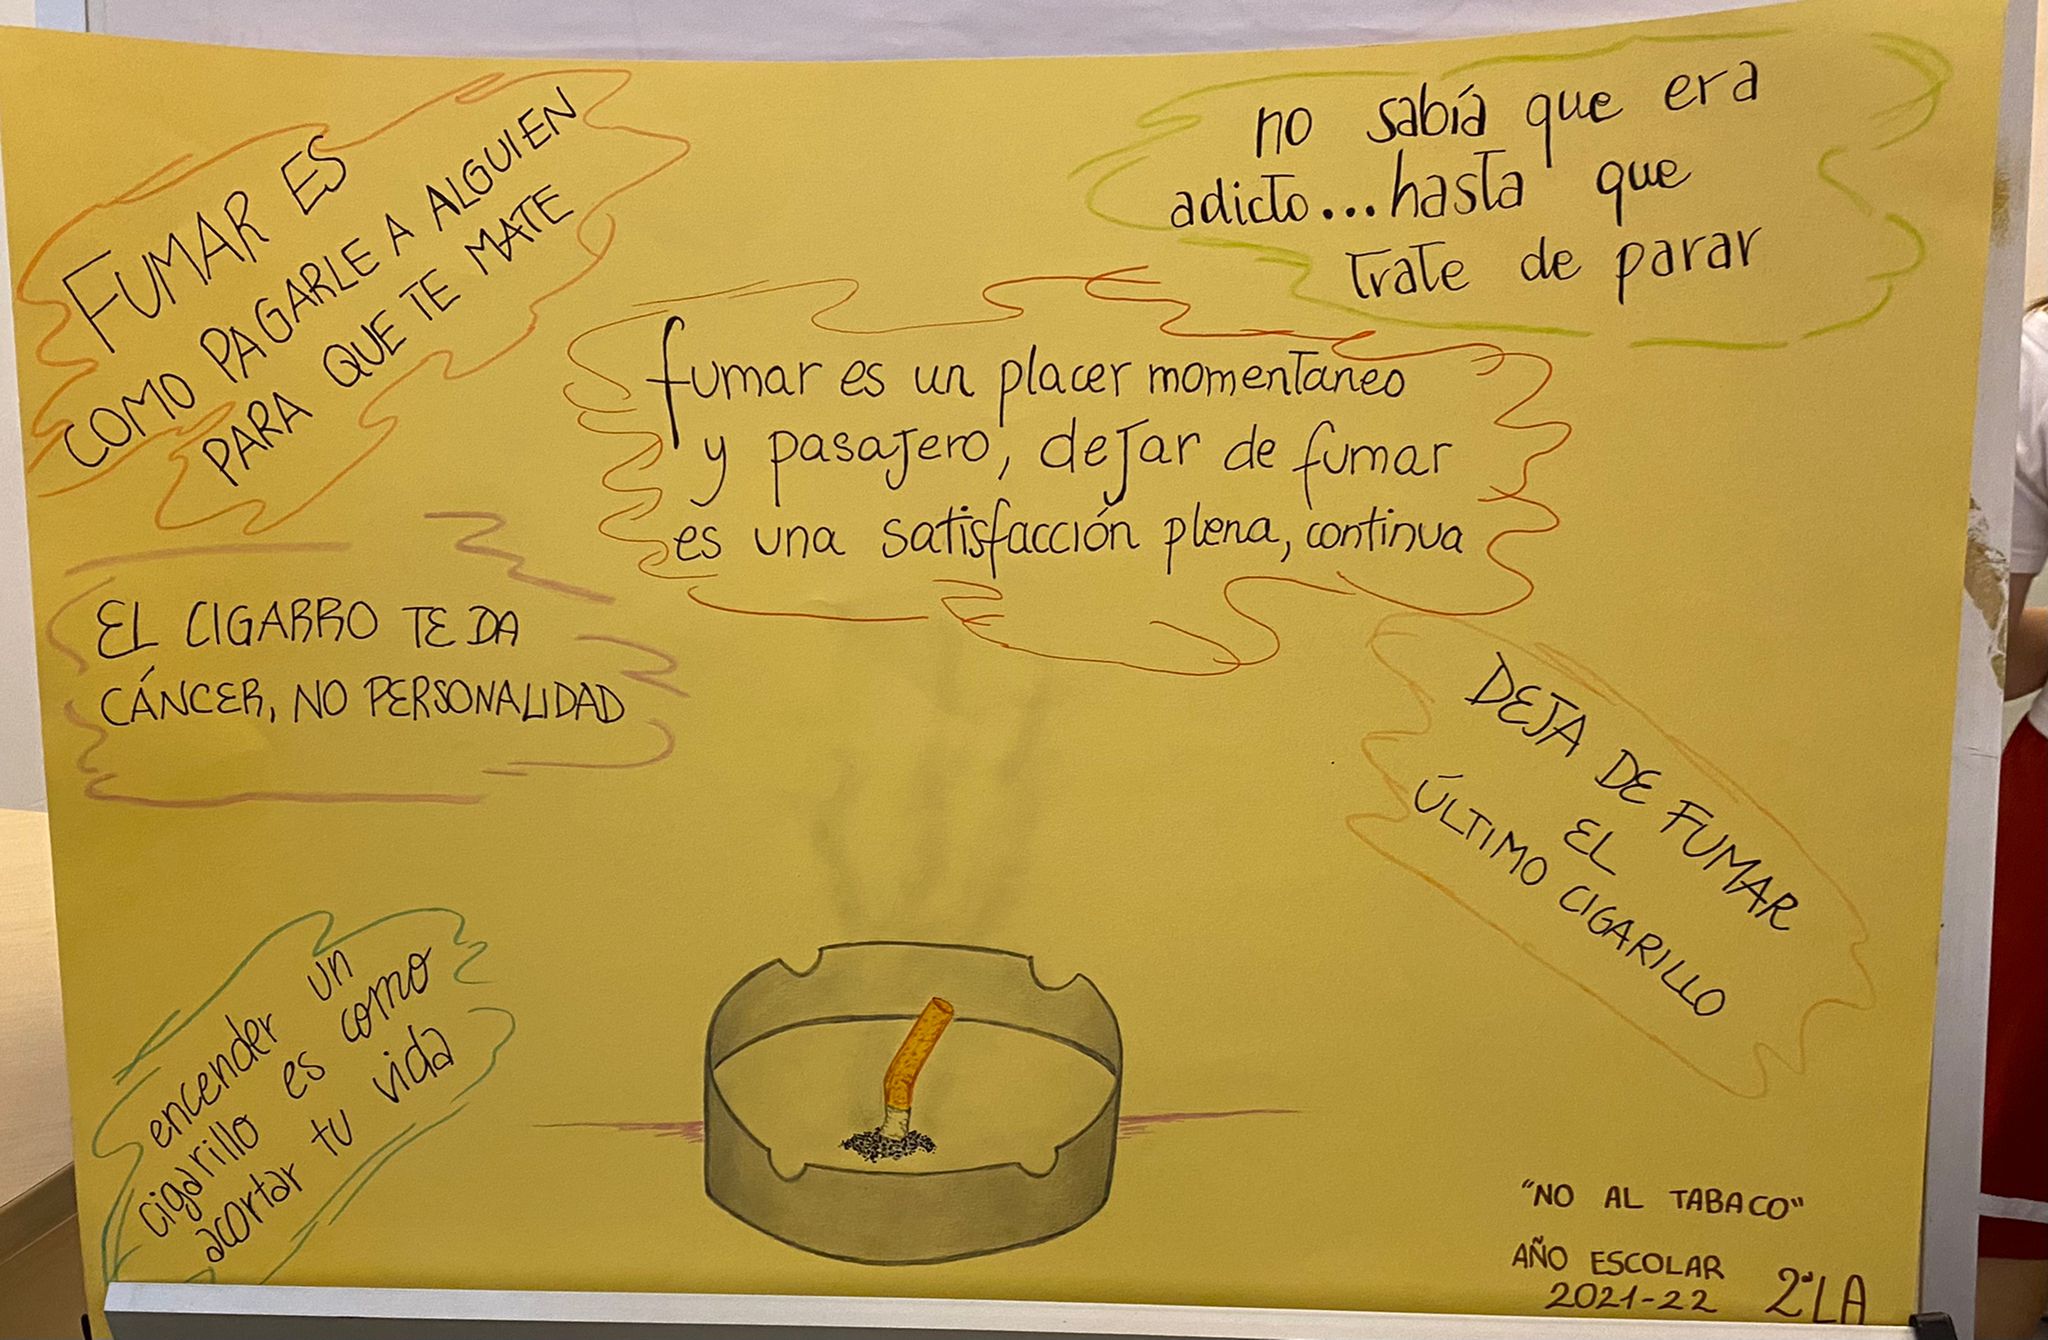 FUMAR ES
COMO PAGARLE A ALGUIEN
PARA QUE TE MATE
no sabía que era
adicto...hasta que
trate de parar
fumar es un placer momentaneo
y pasajero, dejar de fumar
es una satisfacción plena, continua
EL CIGARRO TE DA
CÁNCER, NO PERSONALIDAD
DEJA DE FUMAR
EL
ÚLTIMO CIGARILLO
encender un
cigarillo es como
acortar tu vida
"NO AL TABACO"
AÑO ESCOLAR
2021-22 2ªLA